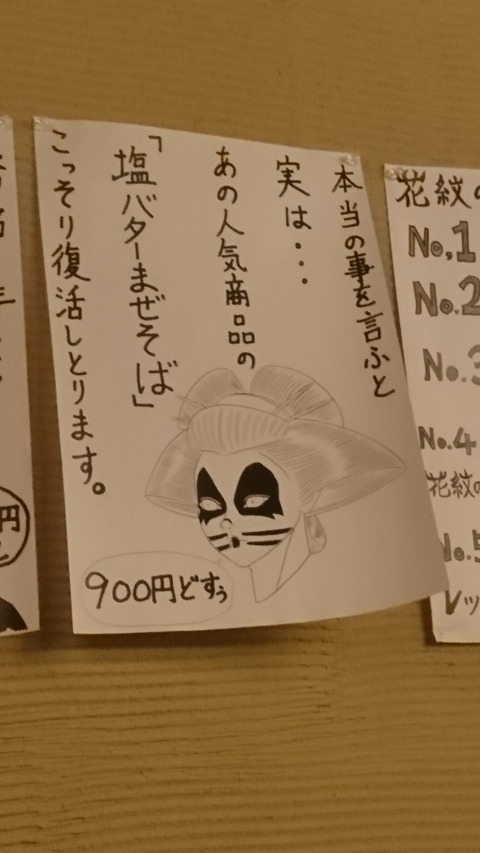 本当の事を言ふと
実は・・・
あの人気商品の
「塩バターまぜそば」
こっそり復活しとります。
900円どすぅ
花紋の
No,1
No.2
No.3
No.4
花紋の
No.5
レッ
円